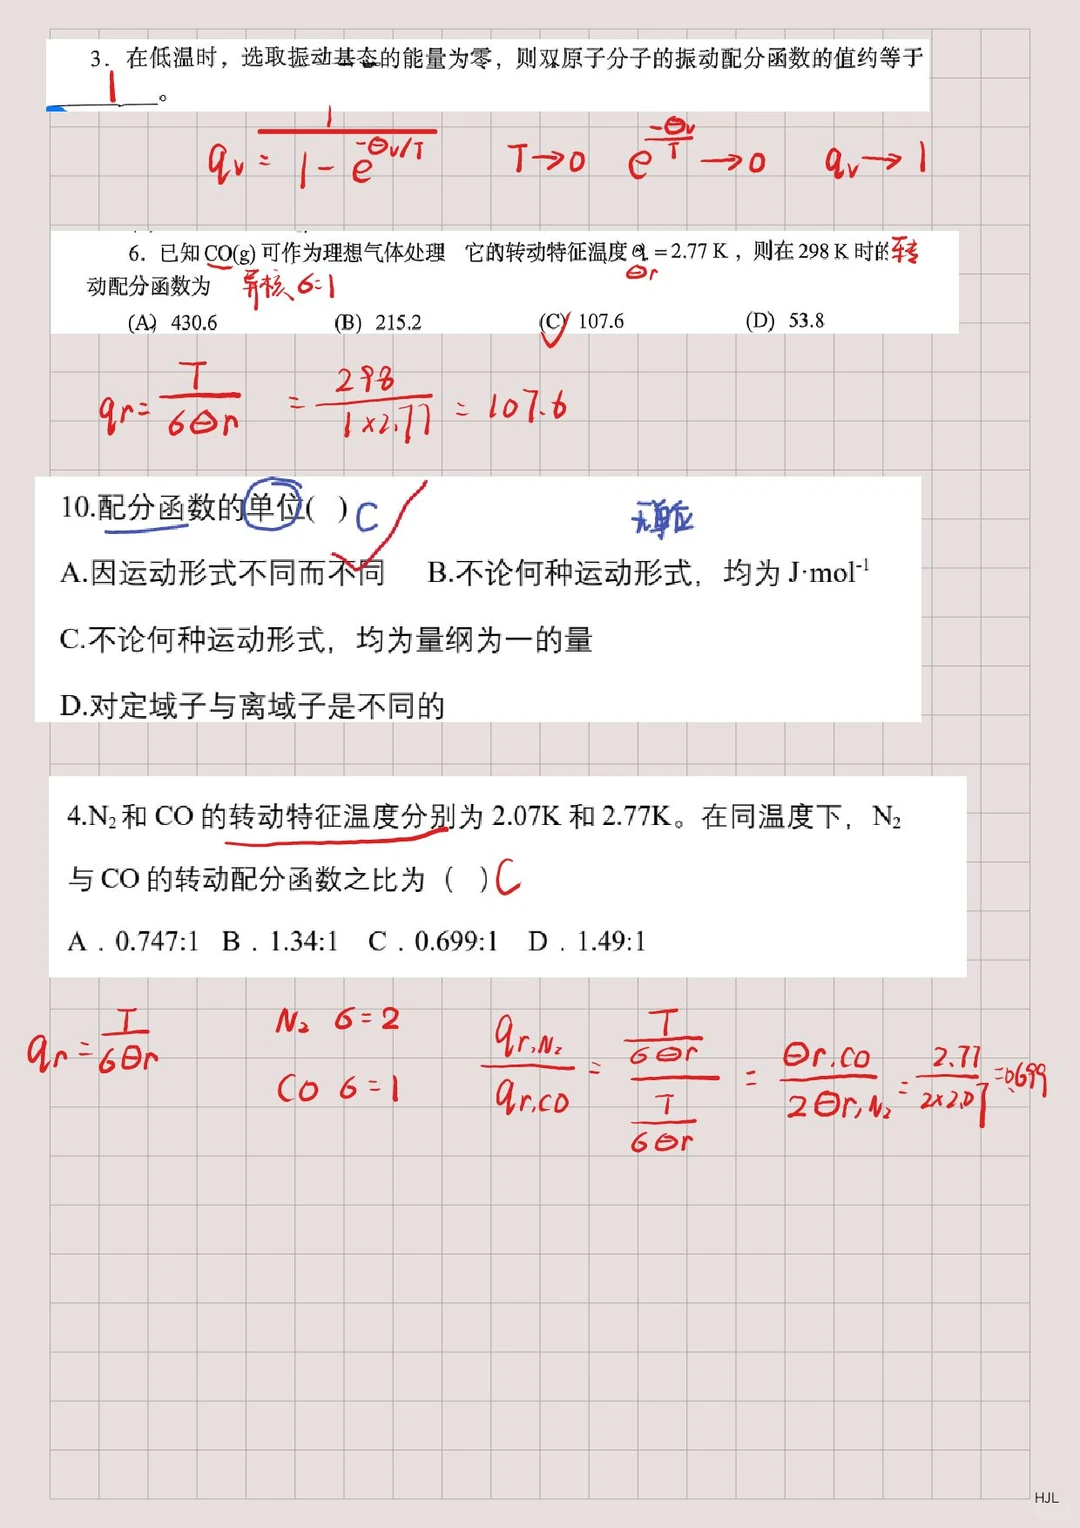 3. 在低温时，选取振动基态的能量为零，则双原子分子的振动配分函数的值约等于
1 。
qv = 1 / (1 - e^(-Θv/T)) T→0 e^(-Θv/T) →0 qv→1
6. 已知 CO(g) 可作为理想气体处理 它的转动特征温度 Θr = 2.77 K，则在 298 K 时的转
动配分函数为 异核 6=1
(A) 430.6 (B) 215.2 (C) 107.6 (D) 53.8
qr = T / 6Θr = 298 / 1×2.77 = 107.6
10.配分函数的单位( ) C 无单位
A.因运动形式不同而不同 B.不论何种运动形式，均为 J·mol⁻¹
C.不论何种运动形式，均为量纲为一的量
D.对定域子与离域子是不同的
4.N₂和 CO 的转动特征温度分别为 2.07K 和 2.77K。在同温度下，N₂
与 CO 的转动配分函数之比为（ ）C
A．0.747:1 B．1.34:1 C．0.699:1 D．1.49:1
qr = T / 6Θr
N₂ 6=2
CO 6=1
qr,N₂ / qr,CO = (T / 6Θr) / (T / 6Θr) = Θr.CO / 2Θr,N₂ = 2.77 / 2×2.07 = 0.699
HJL